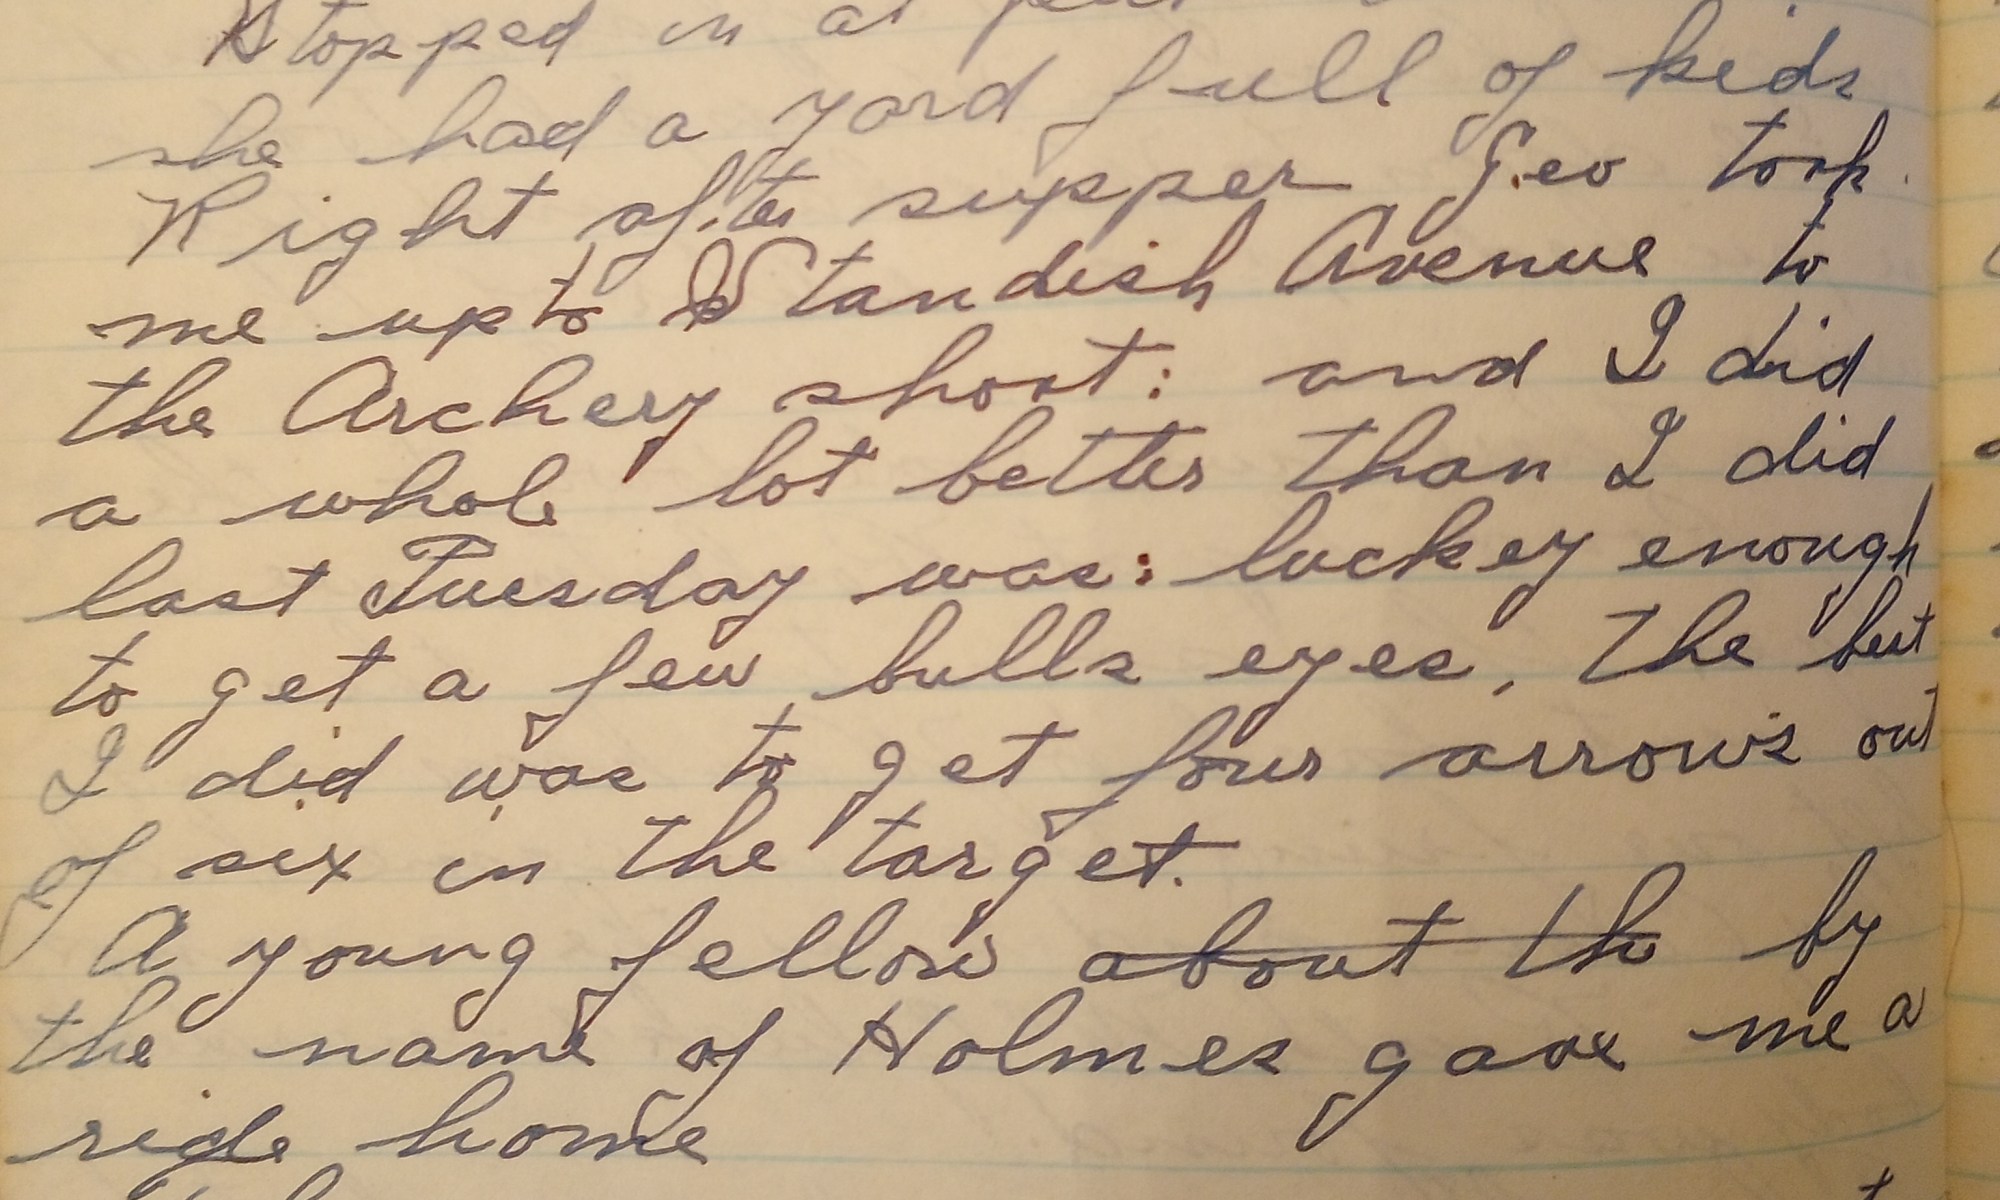 Stopped in at
she had a yard full of kids
Right after supper Geo took
me up to Standish Avenue to
the Archery shoot: and I did
a whole lot better than I did
last Tuesday was: luckey enough
to get a few bulls eyes, the best
I did was to get four arrows out
of six in the target.
A young fellow about th by
the name of Holmes gave me a
ride home